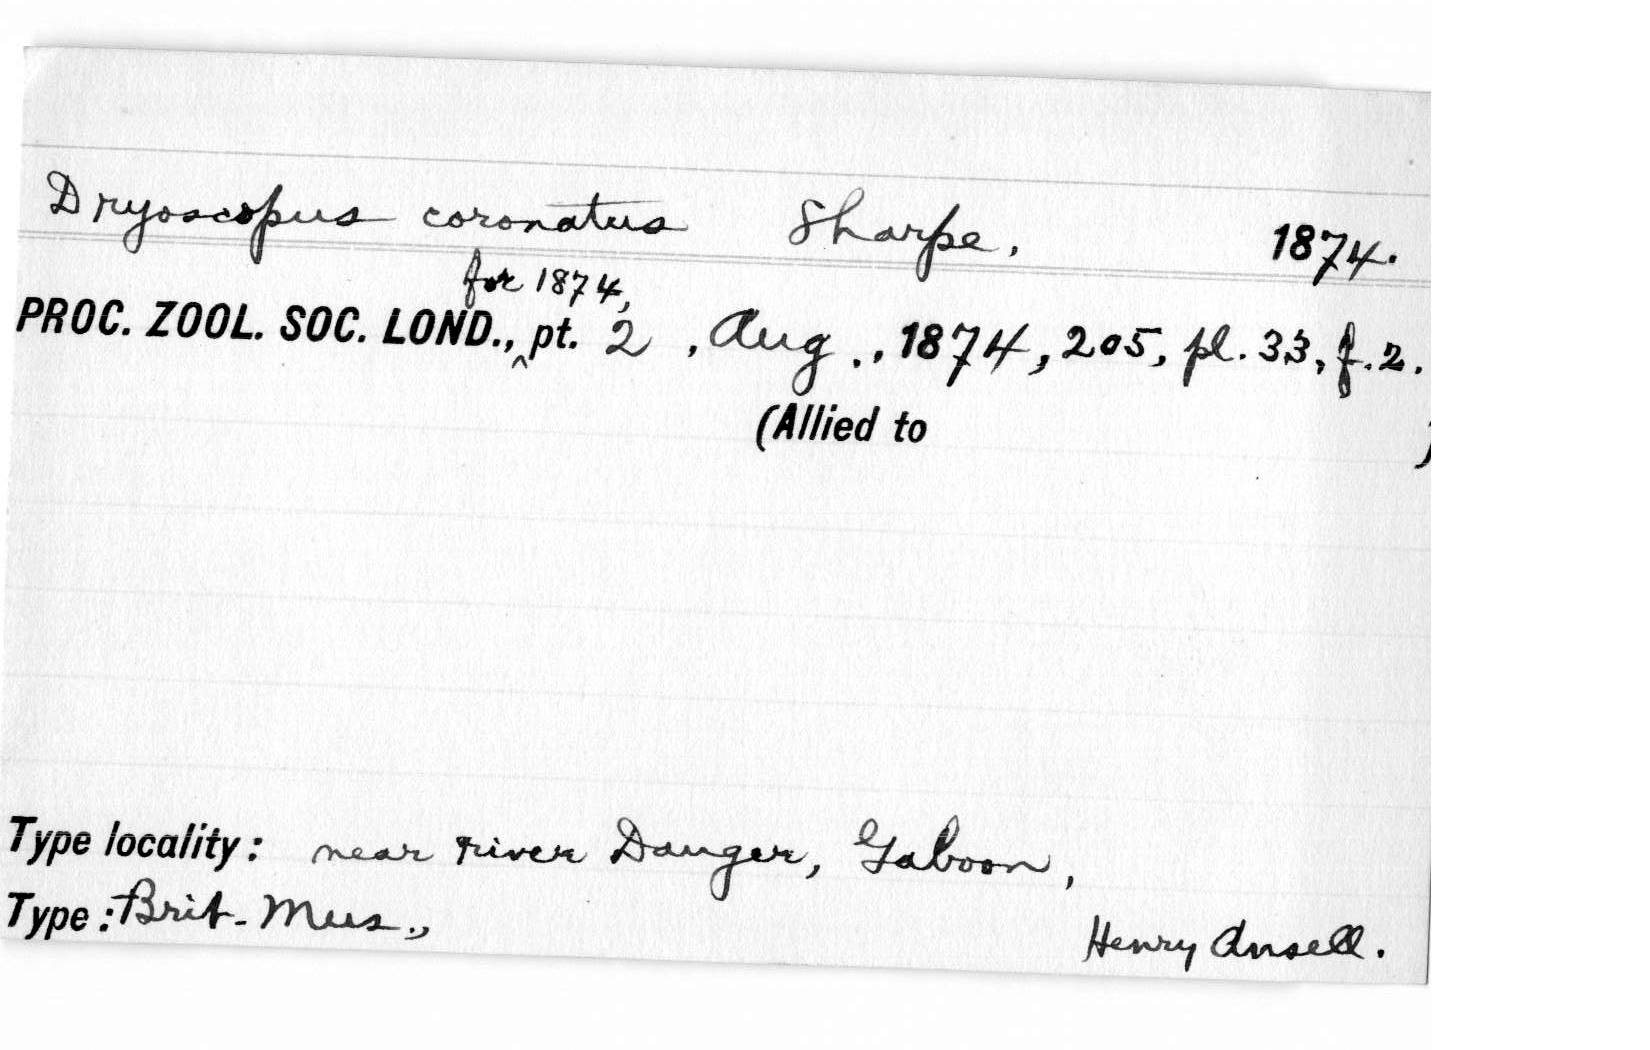 Dryoscopus coronatus Sharpe. 1874.
for 1874,
PROC. ZOOL. SOC. LOND., ^ pt. 2, Aug., 1874, 205, pl. 33, f. 2.
(Allied to )
Type locality: near River Danger, Gaboon,
Type: Brit. Mus., Henry Ansell.